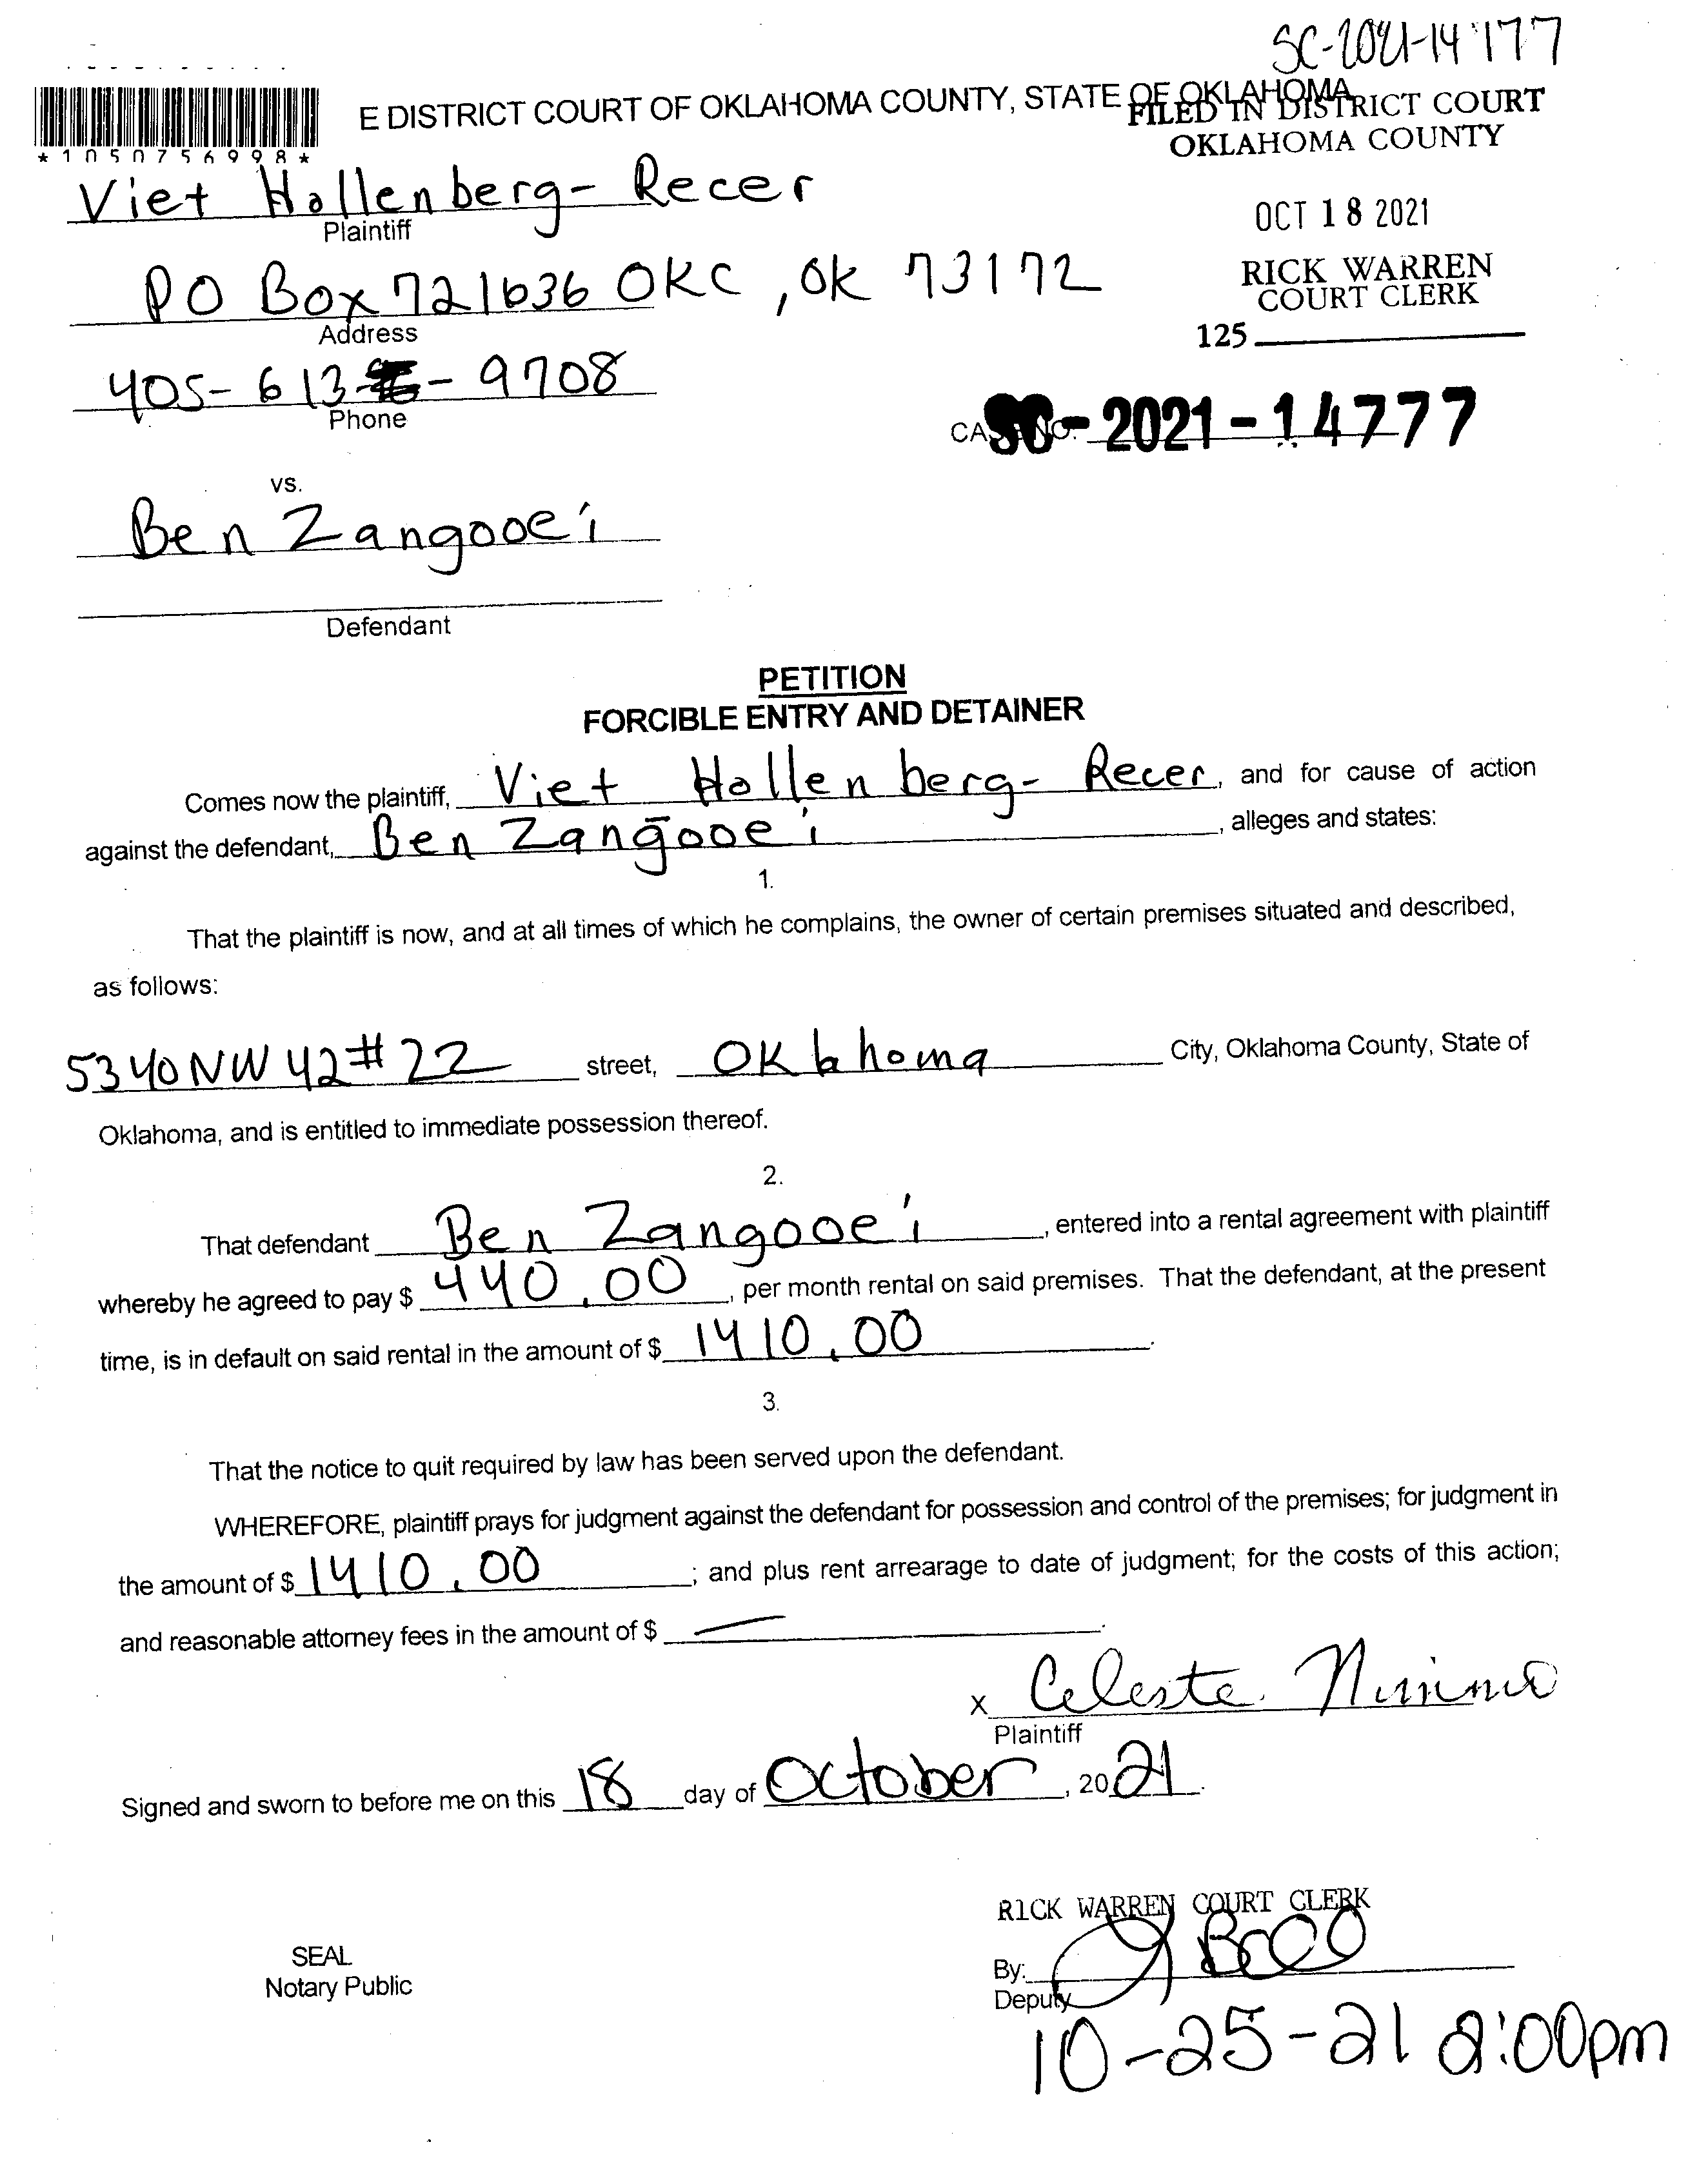 SC-2021-14777
E DISTRICT COURT OF OKLAHOMA COUNTY, STATE OF OKLAHOMA
FILED IN DISTRICT COURT
OKLAHOMA COUNTY
*1050756998*
Viet Hollenberg-Recer
Plaintiff
OCT 18 2021
PO Box 721636 OKC, OK 73172
Address
RICK WARREN
COURT CLERK
125
405-613-9708
Phone
CASE NO. SC-2021-14777
vs.
Ben Zangooei
Defendant
PETITION
FORCIBLE ENTRY AND DETAINER
Comes now the plaintiff, Viet Hollenberg-Recer, and for cause of action
against the defendant, Ben Zangooei, alleges and states:
1.
That the plaintiff is now, and at all times of which he complains, the owner of certain premises situated and described,
as follows:
5340 NW 42 # 22 street, Oklahoma City, Oklahoma County, State of
Oklahoma, and is entitled to immediate possession thereof.
2.
That defendant Ben Zangooei, entered into a rental agreement with plaintiff
whereby he agreed to pay $ 440.00, per month rental on said premises. That the defendant, at the present
time, is in default on said rental in the amount of $ 1410.00.
3.
That the notice to quit required by law has been served upon the defendant.
WHEREFORE, plaintiff prays for judgment against the defendant for possession and control of the premises; for judgment in
the amount of $ 1410.00; and plus rent arrearage to date of judgment; for the costs of this action;
and reasonable attorney fees in the amount of $ —.
x Celeste
Plaintiff
Signed and sworn to before me on this 18 day of October, 2021.
RICK WARREN COURT CLERK
SEAL
Notary Public
By:
Deputy
10-25-21 2:00pm